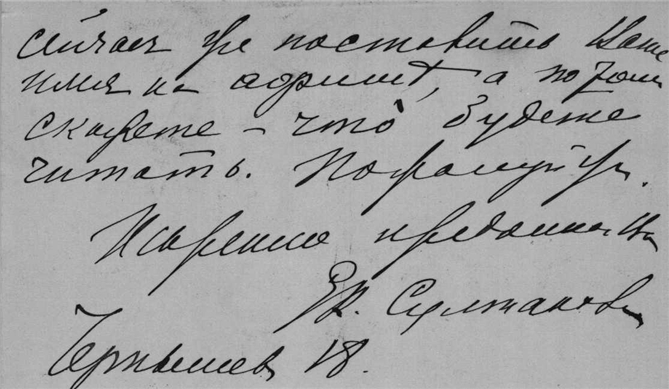 сейчас же поставить Ваше
имя на афишу, а потом
скажете – что будете
читать. Пожалуйста.
Искренно преданная Вам
Ек. Султанова
Чернышев 18.